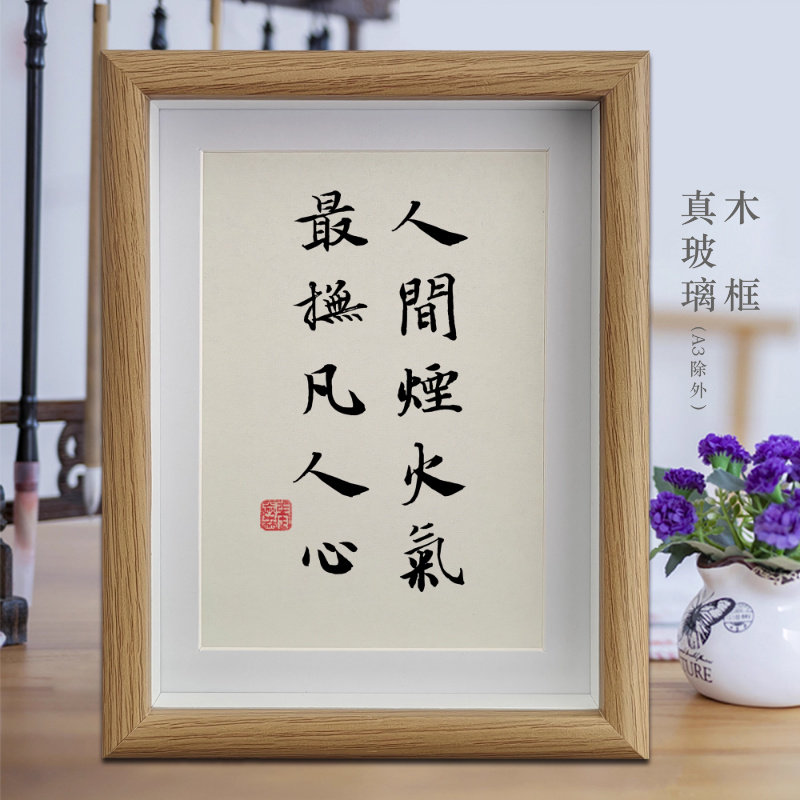 人間煙火氣
最撫凡人心
木框
真玻璃
(A3除外)
TURE